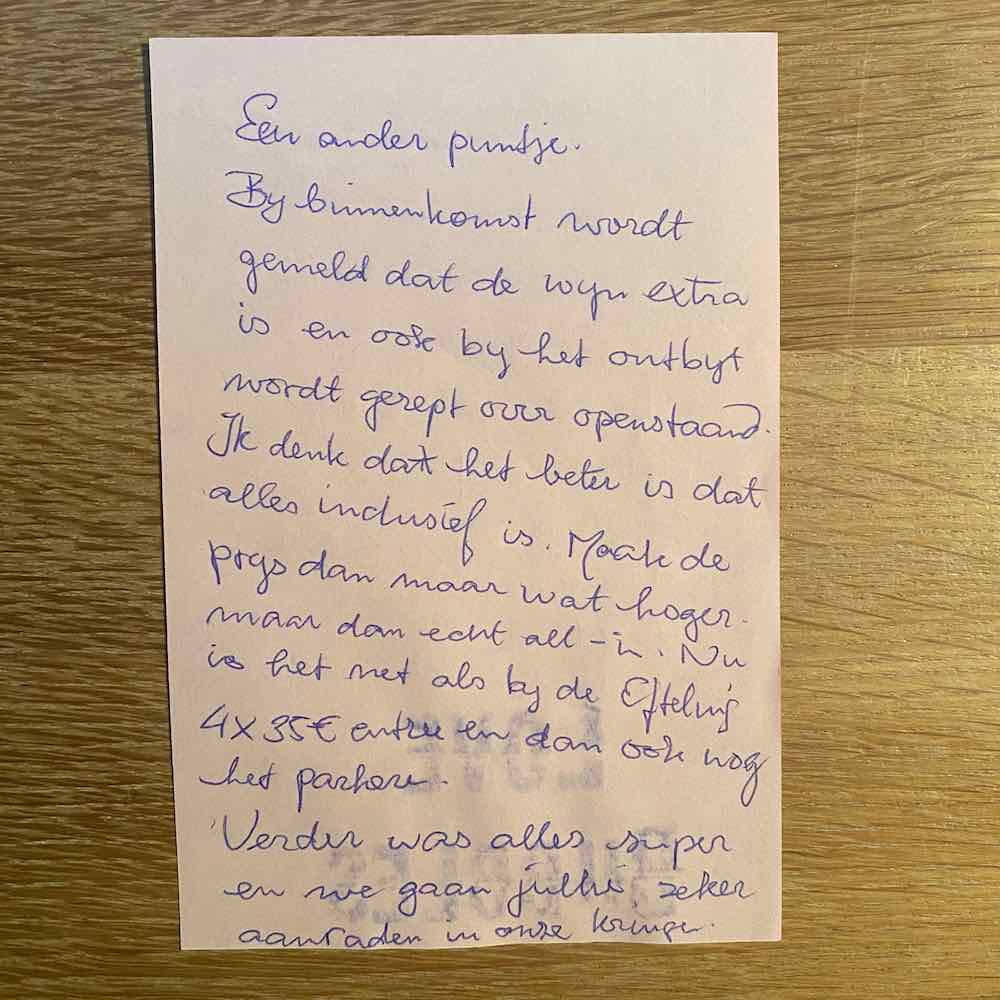 Een ander puntje.
By binnenkomst wordt
gemeld dat de wyn extra
is en ook by het ontbyt
wordt gerept over openstaand.
Ik denk dat het beter is dat
alles inclusief is. Maak de
prys dan maar wat hoger.
maar dan echt all-in. Nu
is het net als by de Efteling
4x35€ entree en dan ook nog
het parkeren.
Verder was alles super
en we gaan jullie zeker
aanraden in onze kringen.